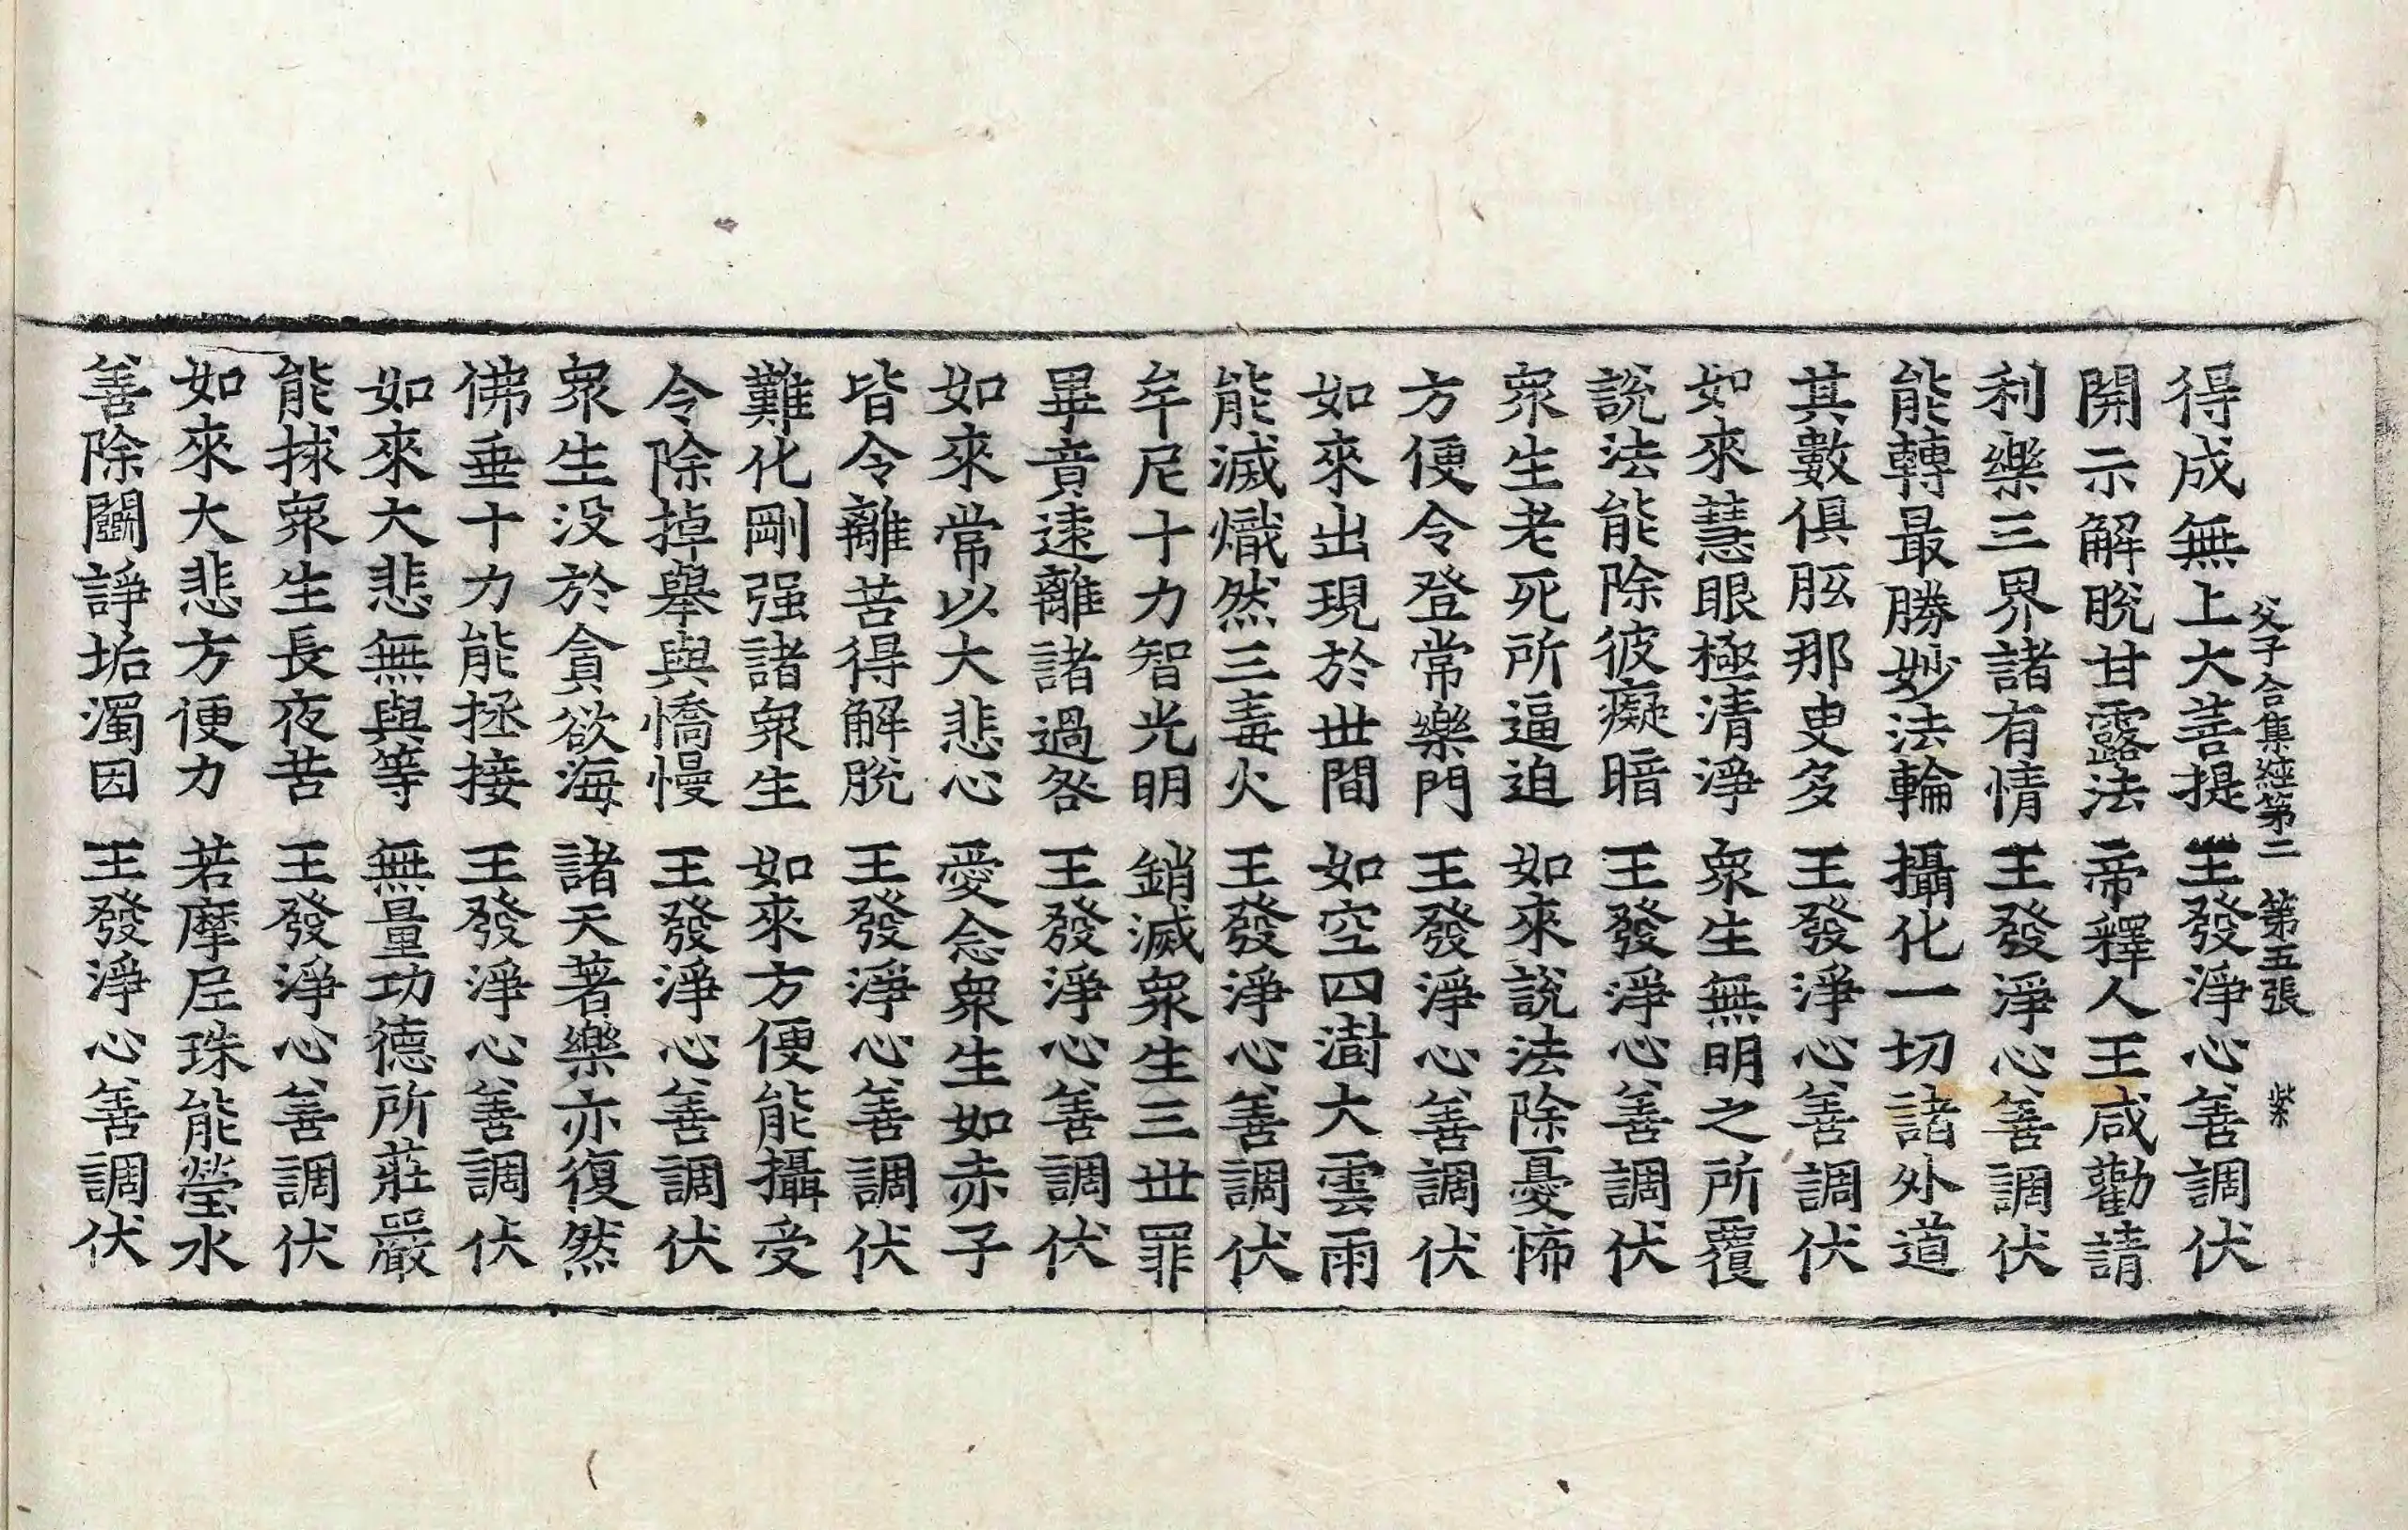 父子合集經第二 第五張 柴
得成無上大菩提 王發淨心善調伏
開示解脫甘露法 帝釋人王咸勸請
利樂三界諸有情 王發淨心善調伏
能轉最勝妙法輪 攝化一切諸外道
其數俱胝那叓多 王發淨心善調伏
如來慧眼極清淨 衆生無明之所覆
說法能除彼癡暗 王發淨心善調伏
衆生老死所逼迫 如來說法除憂怖
方便令登常樂門 王發淨心善調伏
如來出現於世間 如空四澍大雲雨
能滅熾然三毒火 王發淨心善調伏
牟尼十力智光明 銷滅衆生三世罪
畢竟遠離諸過咎 王發淨心善調伏
如來常以大悲心 愛念衆生如赤子
皆令離苦得解脫 王發淨心善調伏
難化剛强諸衆生 如來方便能攝受
令除掉舉與憍慢 王發淨心善調伏
衆生没於貪欲海 諸天著樂亦復然
佛垂十力能拯接 王發淨心善調伏
如來大悲無與等 無量功德所莊嚴
能捄衆生長夜苦 王發淨心善調伏
如來大悲方便力 若摩尼珠能瑩水
善除鬬諍垢濁因 王發淨心善調伏